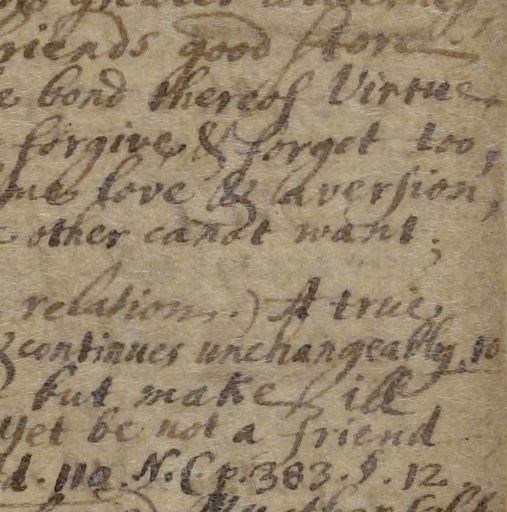 greater
friends good store
e bond thereof Virtue
forgive & forget too,
me love & aversion,
other canot want;
relation.) A true
& continues unchangeably. 10
but make ill
yet be not a friend
d. 110. N. C. p. 383. §. 12.